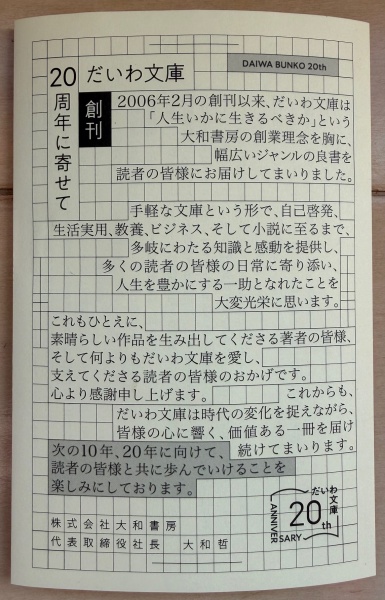 DAIWA BUNKO 20th
だいわ文庫
創刊
20周年に寄せて
2006年2月の創刊以来、だいわ文庫は
「人生いかに生きるべきか」という
大和書房の創業理念を胸に、
幅広いジャンルの良書を
読者の皆様にお届けしてまいりました。
手軽な文庫という形で、自己啓発、
生活実用、教養、ビジネス、そして小説に至るまで、
多岐にわたる知識と感動を提供し、
多くの読者の皆様の日常に寄り添い、
人生を豊かにする一助となれたことを
大変光栄に思います。
これもひとえに、
素晴らしい作品を生み出してくださる著者の皆様、
そして何よりもだいわ文庫を愛し、
支えてくださる読者の皆様のおかげです。
心より感謝申し上げます。
これからも、
だいわ文庫は時代の変化を捉えながら、
皆様の心に響く、価値ある一冊を届け
続けてまいります。
次の10年、20年に向けて、
読者の皆様と共に歩んでいけることを
楽しみにしております。
株式会社大和書房
代表取締役社長 大和哲
だいわ文庫
20th
ANNIVERSARY